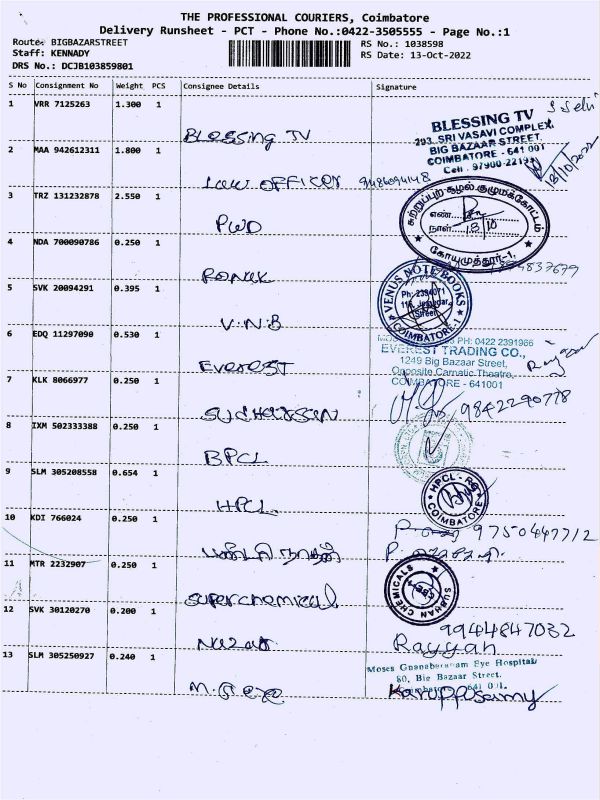 THE PROFESSIONAL COURIERS, Coimbatore
Delivery Runsheet - PCT - Phone No.:0422-3505555 - Page No.:1
Route: BIGBAZARSTREET
RS No.: 1038598
Staff: KENNADY
RS Date: 13-Oct-2022
DRS No.: DCJB103859801
S No Consignment No Weight PCS Consignee Details Signature
1 VRR 7125263 1.300 1
BLESSING TV
BLESSING TV
293, SRI VASAVI COMPLEX,
BIG BAZAAR STREET,
COIMBATORE - 641 001
13/10/2022
2 MAA 942612311 1.800 1
LAW OFFICER
3 TRZ 131232878 2.550 1
PWD
சுற்றுப்புற சூழல் குழுமக்கோட்டம்
எண்
நாள்
கோயமுத்தூர்-1.
4 NDA 700090786 0.250 1
RONAK
5 SVK 20094291 0.395 1
V.N.B
VENUS NOTE BOOKS
COIMBATORE-1
6 EDQ 11297090 0.530 1
EVEREST
PH: 0422 2391966
EVEREST TRADING CO.,
1249 Big Bazaar Street,
Opposite Carnatic Theatre,
COIMBATORE - 641001
7 KLK 8066977 0.250 1
9842290778
8 IXM 502333388 0.250 1
BPCL
9 SLM 305208558 0.654 1
HPCL
COIMBATORE
10 KDI 766024 0.250 1
9750447712
11 MTR 2232907 0.250 1
superchemical
SUBHAN CHEMICALS
12 SVK 30120270 0.200 1
9944847032
Rayyan
13 SLM 305250927 0.240 1
Moses Gnanabaranam Eye Hospital
80, Big Bazaar Street.
Karuppasamy